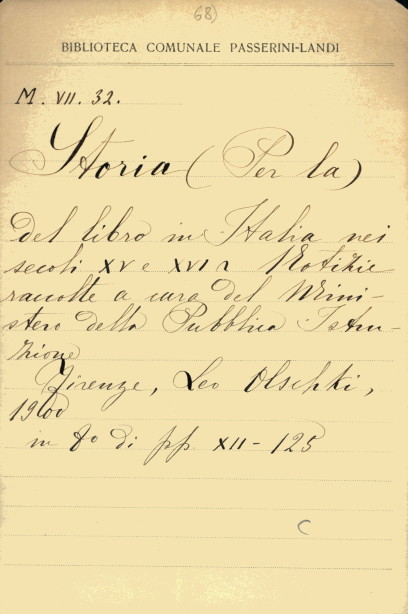 68)
BIBLIOTECA COMUNALE PASSERINI-LANDI
M. VII. 32.
Storia (Per la)
del libro in Italia nei
secoli XV e XVI Notizie
raccolte a cura del Mini-
stero della Pubblica Istru-
zione
Firenze, Leo Olschki,
1900
in 8o di pp XII - 125
C